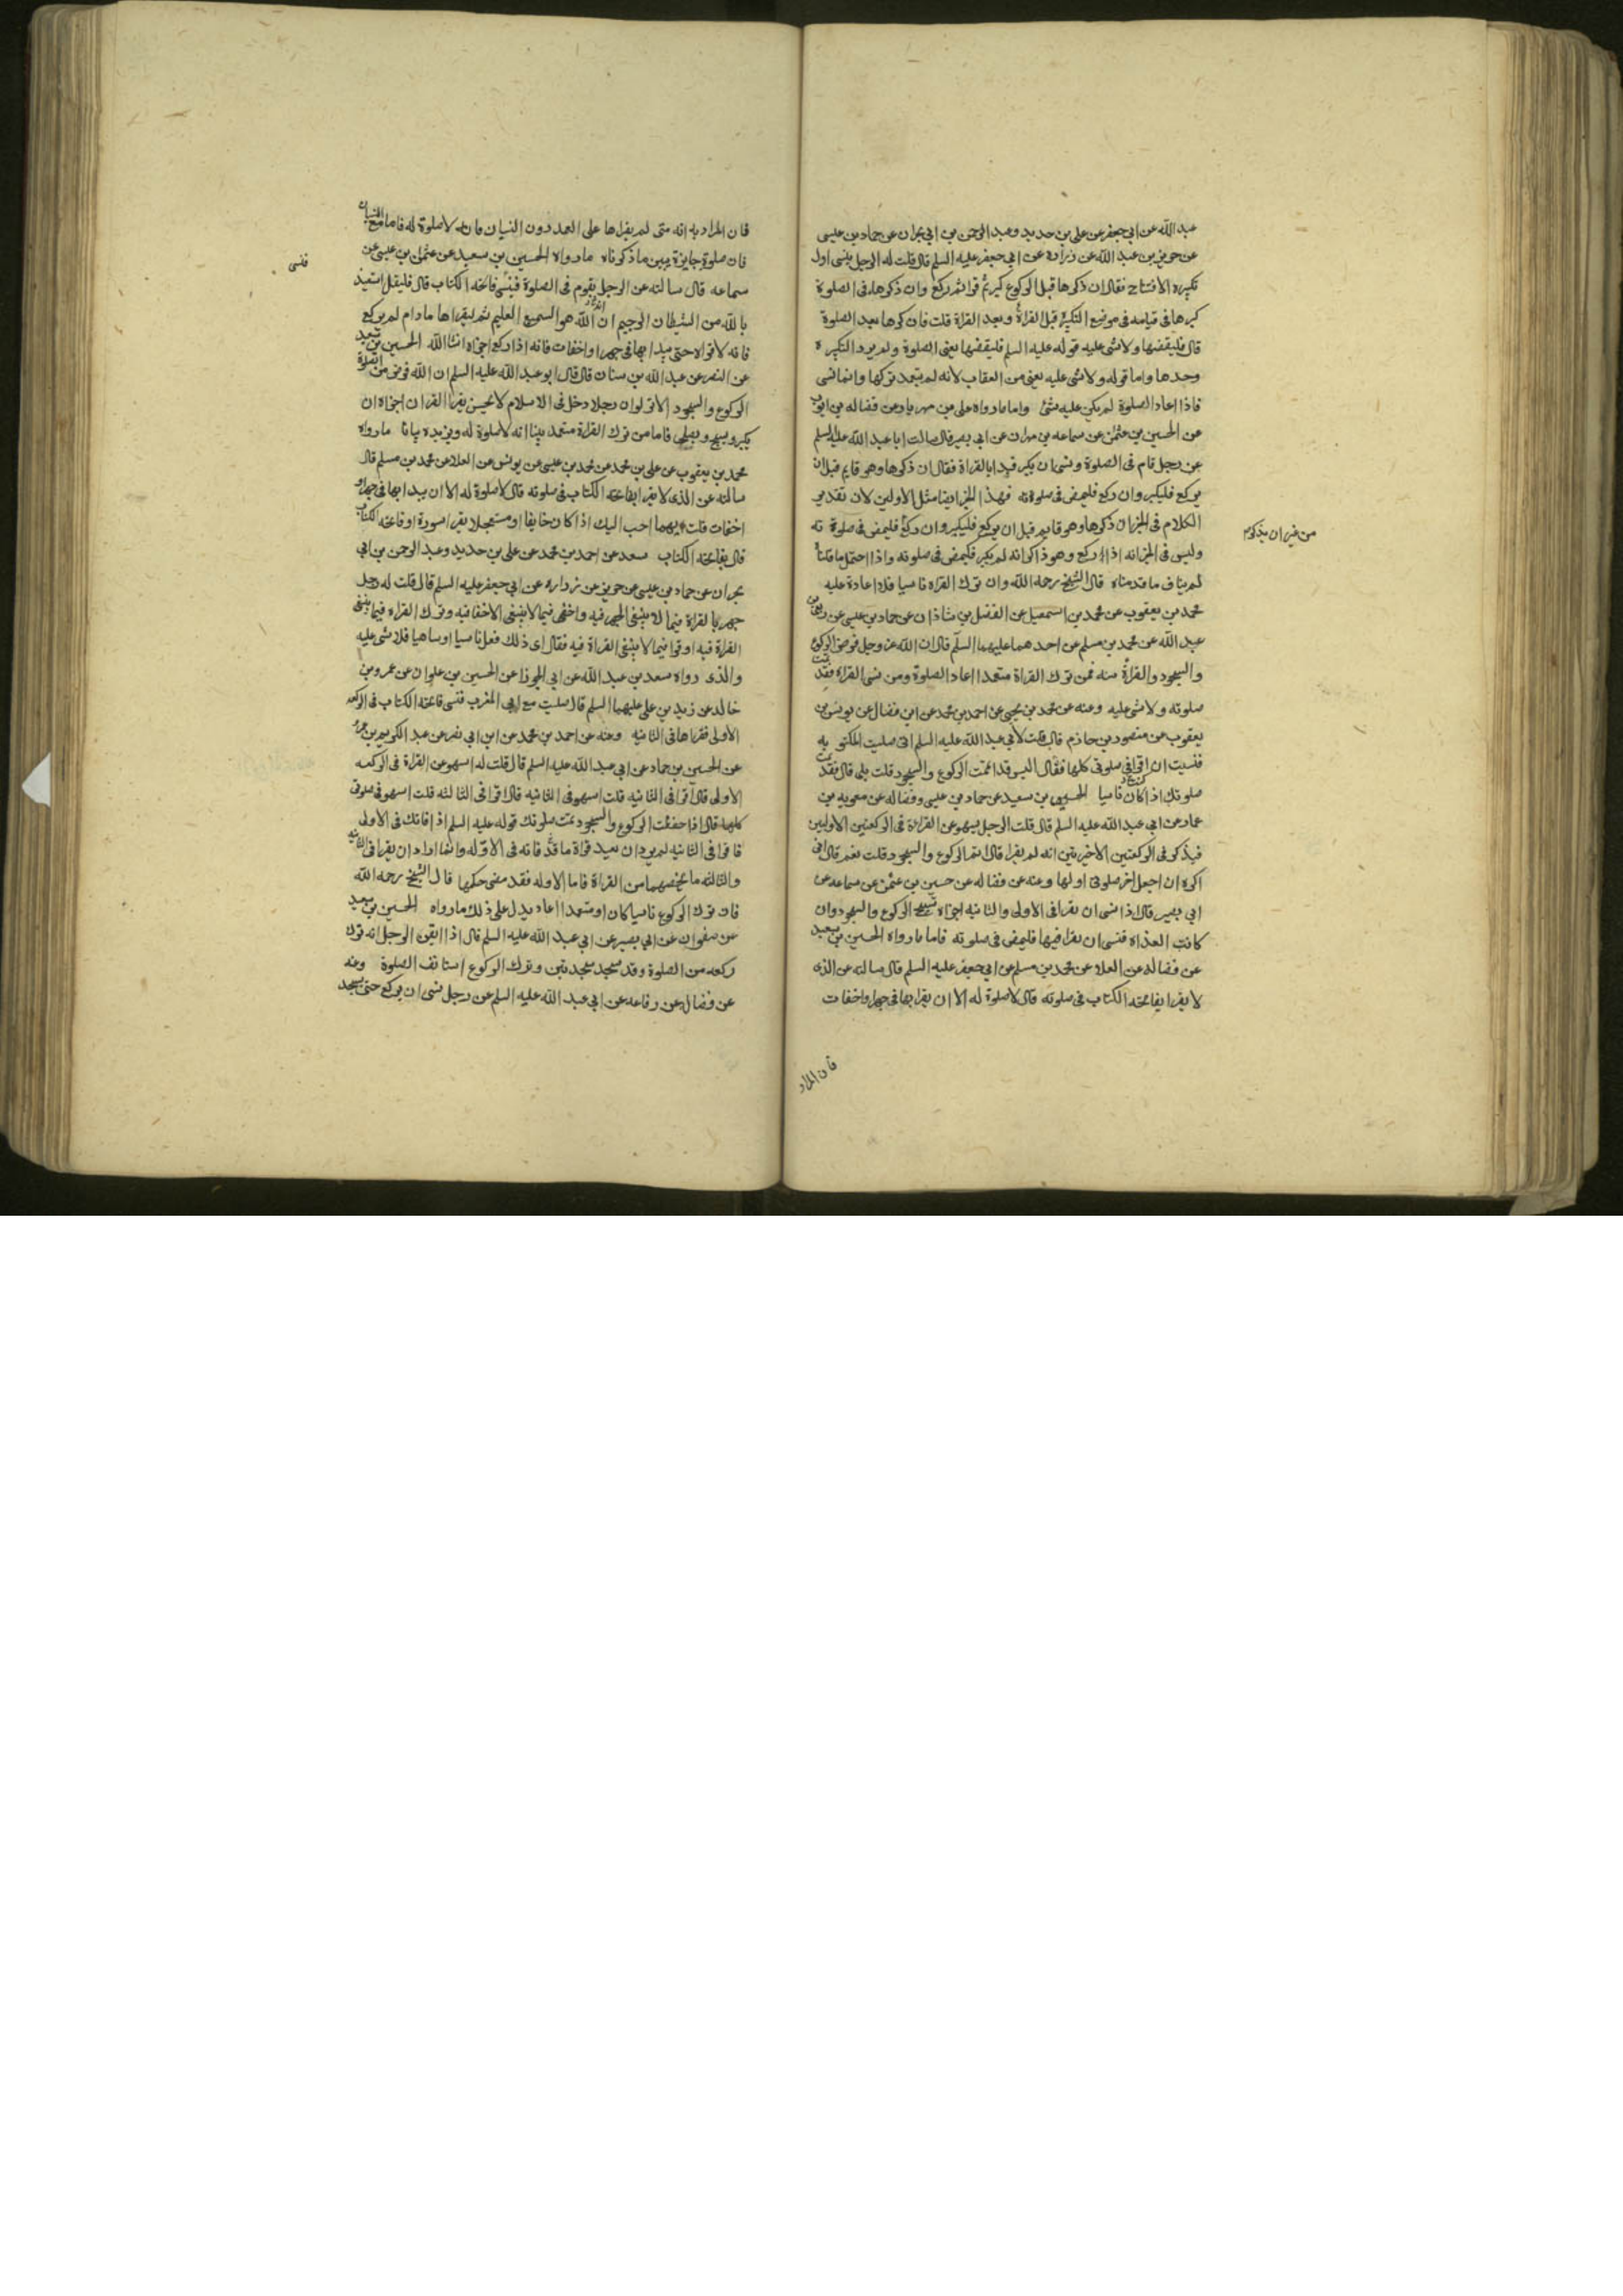 عبد الله عن ابي جعفر عن علي بن حديد وعبد الرحمن بن ابي نجران عن حماد بن عيسى
عن حريز بن عبد الله عن زرارة عن ابي جعفر عليه السلم قال قلت له الرجل ينسى اول
تكبيره الافتتاح فقال ان ذكرها قبل الركوع كبر ثم قرا ثم ركع وان ذكرها في الصلوة
كبرها في قيامه في موضع التكبيرة قبل القراة وبعد القراة قلت فان ذكرها بعد الصلوة
قال فليقضها ولا شى عليه قوله عليه السلم فليقضها يعني الصلوة ولم يرد التكبيرة
وحدها واما قوله ولا شى عليه يعني من العقاب لانه لم يتعمد تركها وانما نسى
فاذا اعاد الصلوة لم يكن عليه شئ واما ما رواه علي بن مهزيار عن فضاله بن ايوب
عن الحسين بن عثمن عن سماعه بن مهران عن ابي بصير قال سالت ابا عبد الله عليه السلم
عن رجل قام في الصلوة ونسى ان يكبر فبدا بالقراة فقال ان ذكرها وهو قايم قبل ان
يركع فليكبر وان ركع فليمض في صلوته فهذا الخبر ايضا مثل الاولين لان تقدير
الكلام في الخبر ان ذكرها وهو قايم قبل ان يركع فليكبر وان ركع فليمض في صلوته
من غير ان يذكرم
وليس في الخبر انه اذا ركع وهو ذاكر انه لم يكبر فليمض في صلوته واذا احتمل ما قلنا
لم يناف ما قدمناه قال الشيخ رحمه الله وان ترك القراه ناسيا فلا اعادة عليه
محمد بن يعقوب عن محمد بن اسمعيل عن الفضل بن شاذان عن حماد بن عيسى عن ربعي بن
عبد الله عن محمد بن مسلم عن احدهما عليهما السلم قال ان الله عز وجل فرض الركوع
والسجود والقراة سنه فمن ترك القراة متعمدا اعاد الصلوة ومن نسى القراه فقد تمت
صلوته ولا شى عليه وعنه عن محمد بن يحيى عن احمد بن محمد عن ابن فضال عن يونس بن
يعقوب عن منصور بن حازم قال قلت لابي عبد الله عليه السلم اني صليت المكتوبه
فنسيت ان اقرا في صلوتي كلها فقال اليس قد اتممت الركوع والسجود قلت بلى قال فقد تمت
صلوتك اذا كان ناسيا الحسين بن سعيد عن حماد بن عيسى وفضاله عن معويه بن
عمار عن ابي عبد الله عليه السلم قال قلت الرجل يسهو عن القراءة في الركعتين الاوليين
فيذكر في الركعتين الاخيرتين انه لم يقرا قال اتم الركوع والسجود قلت نعم قال اني
اكره ان اجعل اخر صلوتي اولها وعنه عن فضاله عن حسين بن عثمن عن سماعه عن
ابي بصير قال اذا نسى ان يقرا في الاولى والثانيه اجزاه تسبيح الركوع والسجود وان
كانت الغداه فنسى ان يقرا فيها فليمض في صلوته فاما ما رواه الحسين بن سعيد
عن فضاله عن العلا عن محمد بن مسلم عن ابي جعفر عليه السلم قال سالته عن الذي
لا يقرا بفاتحه الكتاب في صلوته قال لا صلوة له الا ان يقرا بها في جهر او اخفات
فان المراد
فان المراد به انه متى لم يقراها على العمد دون النسيان فانه لا صلوة له فاما مع النسيان
فان صلوته جايزة يبين ما ذكرناه ما رواه الحسين بن سعيد عن عثمن بن عيسى عن
سماعه قال سالته عن الرجل يقوم في الصلوة فينسى فاتحه الكتاب قال فليقل استعيذ
فنسى
بالله من الشيطان الرجيم ان الله هو السميع العليم ثم ليقراها ما دام لم يركع
فانه لا قراه حتى يبدا بها في جهر او اخفات فانه اذا ركع اجزاه انشا الله الحسين بن سعيد
عن النضر عن عبد الله بن سنان قال قال ابو عبد الله عليه السلم ان الله فرض من الصلوة
الركوع والسجود الا ترى لو ان رجلا دخل في الاسلام لا يحسن يقرا القران اجزاه ان
يكبر ويسبح ويصلي فاما من ترك القراة متعمد بينا انه لا صلوة له ويزيده بيانا ما رواه
محمد بن يعقوب عن علي بن محمد عن محمد بن عيسى عن يونس عن العلا عن محمد بن مسلم قال
سالته عن الذي لا يقرا بفاتحه الكتاب في صلوته قال لا صلوة له الا ان يبدا بها في جهر او
اخفات قلت ايهما احب اليك اذا كان خايفا او مستعجلا يقرا سورة او فاتحه الكتاب
قال بفاتحه الكتاب سعد عن احمد بن محمد عن علي بن حديد وعبد الرحمن بن ابي
نجران عن حماد بن عيسى عن حريز عن زراره عن ابي جعفر عليه السلم قال قلت له رجل
جهر بالقراة فيما لا ينبغي الجهر فيه واخفى فيما لا ينبغي الاخفا فيه وترك القراه فيما ينبغي
القراة فيه او قرا فيما لا ينبغي القراة فيه فقال اي ذلك فعل ناسيا او ساهيا فلا شى عليه
والذي رواه سعد بن عبد الله عن ابي الجوزا عن الحسين بن علوان عن عمرو بن
خالد عن زيد بن علي عليهما السلم قال صليت مع ابي المغرب فنسى فاتحه الكتاب في الركعه
الاولى فقراها في الثانيه وعنه عن احمد بن محمد عن ابن ابي نصر عن عبد الكريم بن عمرو
عن الحسين بن حماد عن ابي عبد الله عليه السلم قال قلت له اسهو عن القراة في الركعه
الاولى قال اقرا في الثانيه قلت اسهو في الثانيه قال اقرا في الثالثه قلت اسهو في صلوتي
كلها قال اذا حفظت الركوع والسجود تمت صلوتك قوله عليه السلم اذا فاتك في الاولى
فاقرا في الثانيه لم يرد ان يعيد قراة ما قد فاته في الاوله وانما اراد ان يقرا في الثانيه
والثالثه ما يخصهما من القراة فاما الاوله فقد مضى حكمها قال الشيخ رحمه الله
فان ترك الركوع ناسيا كان او متعمدا اعاد يدل على ذلك ما رواه الحسين بن سعيد
عن صفوان عن ابي بصير عن ابي عبد الله عليه السلم قال اذا ايقن الرجل انه ترك
ركعه من الصلوة وقد سجد سجدتين وترك الركوع استانف الصلوة وعنه
عن فضال عن رفاعه عن ابي عبد الله عليه السلم عن رجل نسى ان يركع حتى يسجد